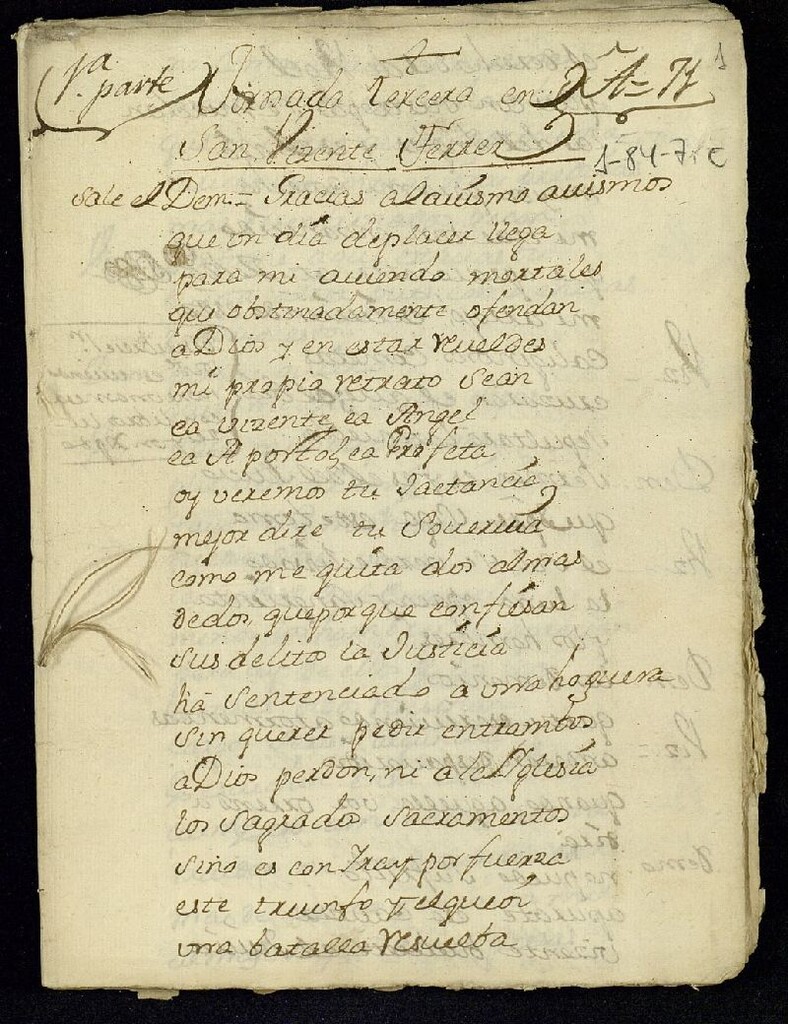 1.ª parte
Jornada tercera en 2ª A= 74
1
San Vizente Ferrer
1-84-7, C
sale el Dem.= Gracias al auismo auismos
que un dia deplacer llega
para mi auiendo mortales
que obstinadamente ofendan
a Dios y en estar reueldes
mi propio retrato sean
ea vizente, ea Angel
ea Apostol, ea Profeta
oy veremos tu Jactancia
mejor dire tu Soueruia
como me quita dos almas
de dos, que porque confiesan
sus delitos la Justicia
ha sentenciado a vna hoguera
sin querer pedir entrambos
a Dios perdon, ni a la Yglesia
los Sagrados Sacramentos
sino es con
por fuerza
este triunfo y
vna batalla resuelta